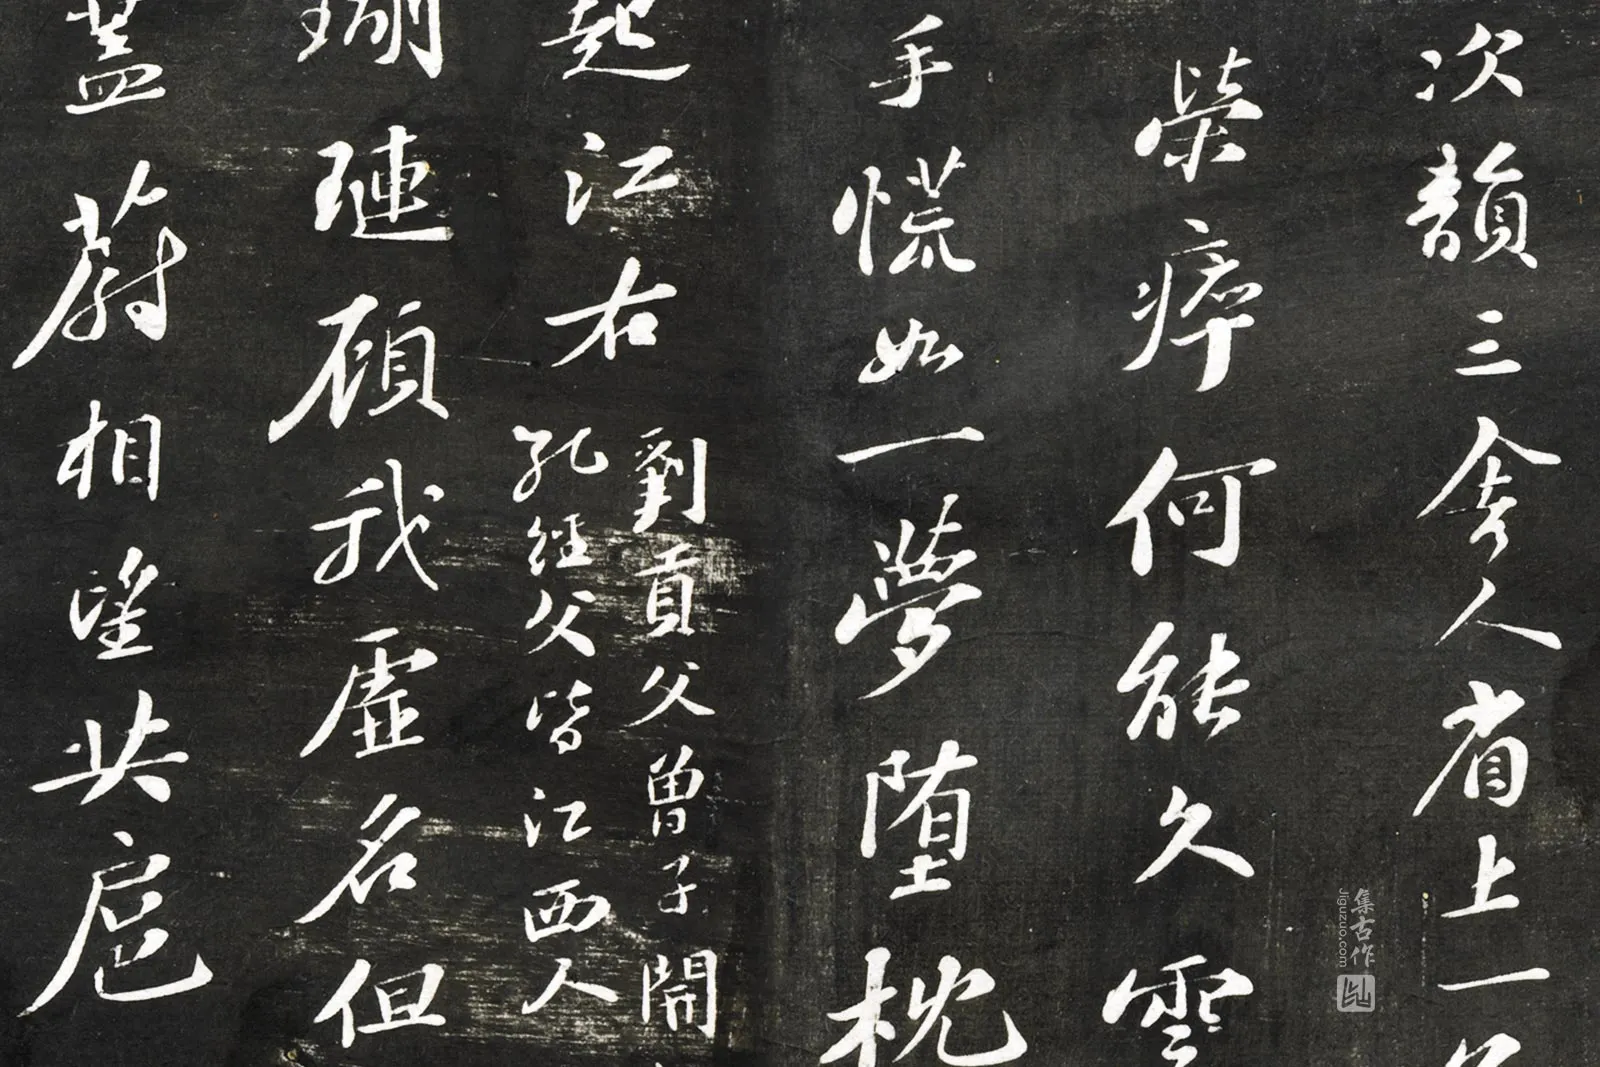 次韻三舍人省上一
榮瘁何能久雲
手慌如一夢墮枕
起江右
劉貢父曾子開
孔經父皆江西人
瑚璉顧我虛名但
蓋蔚相望共扈
集古作
Jiguzuo.com